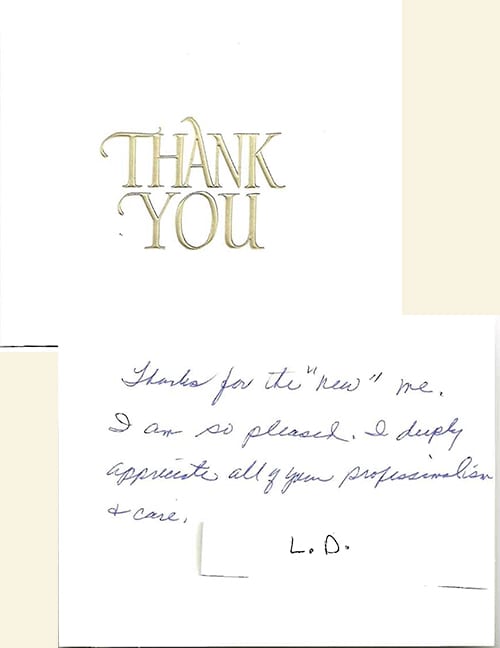 THANK
YOU
Thanks for the "new" me.
I am so pleased. I deeply
appreciate all of your professionalism
& care.
L. D.